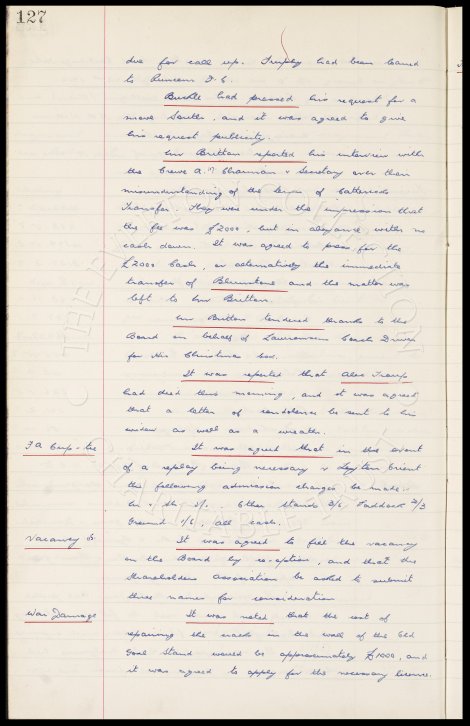 127
due for call up. had been loaned
to Runcorn F.C.
Buckle had pressed his request for a
move South, and it was agreed to give
his request publicity.
Mr Britton reported his interview with
the Crewe A. Chairman & Secretary over their
misunderstanding of the terms of Catterick's
Transfer. They were under the impression that
the fee was £2000, but in abeyance with no
cash down. It was agreed to press for the
£2000 Cash, or alternatively the immediate
transfer of Blunstone and the matter was
left to Mr Britton.
Mr Britton tendered thanks to the
Board on behalf of Lawrensons Coach Driver
for his Christmas box.
It was reported that Alex Troup
had died this morning, and it was agreed
that a letter of condolence be sent to his
widow as well as a wreath.
F A Cup-tie It was agreed that in the event
of a replay being necessary v Leyton Orient
the following admission charges be made:-
Other Stands 3/6 Paddock 2/3
Ground 1/6, all cash.
Vacancy It was agreed to fill the vacancy
on the Board by co-option, and that the
Shareholders Association be asked to submit
three names for consideration
War Damage It was noted that the cost of
repairing the cracks in the wall of the Old
Goal Stand would be approximately £1000, and
it was agreed to apply for the necessary licence.